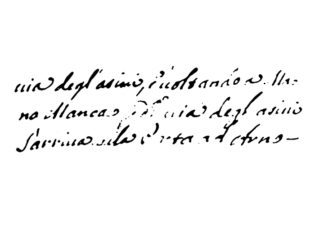 uia degl'asini, è uoltando a Ma-
no Manca uia degl asini
s'arriua alla Porta ad Arno-